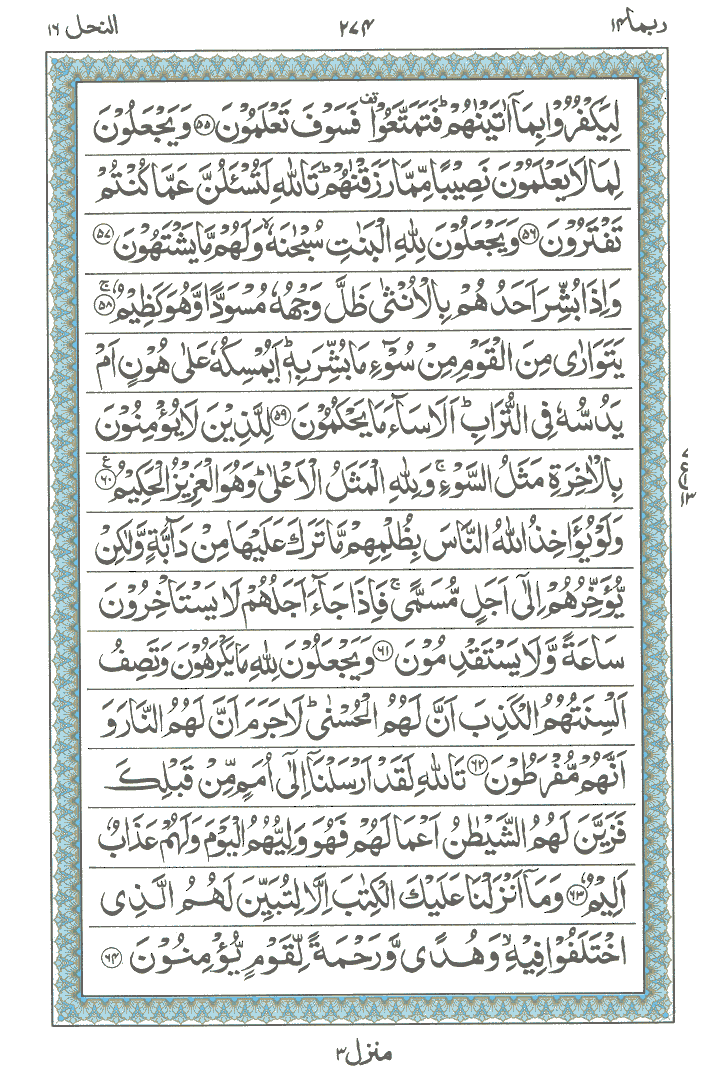 ربما ۱۴ ۲۷۴ النحل ۱۶
لِيَكْفُرُوْا بِمَاۤ اٰتَيْنٰهُمْ ؕ فَتَمَتَّعُوْا ۫ فَسَوْفَ تَعْلَمُوْنَ ۵۵ وَ يَجْعَلُوْنَ
لِمَا لَا يَعْلَمُوْنَ نَصِيْبًا مِّمَّا رَزَقْنٰهُمْ ؕ تَاللّٰهِ لَتُسْـَٔلُنَّ عَمَّا كُنْتُمْ
تَفْتَرُوْنَ ۵۶ وَ يَجْعَلُوْنَ لِلّٰهِ الْبَنٰتِ سُبْحٰنَهٗ ۙ وَ لَهُمْ مَّا يَشْتَهُوْنَ ۵۷
وَ اِذَا بُشِّرَ اَحَدُهُمْ بِالْاُنْثٰى ظَلَّ وَجْهُهٗ مُسْوَدًّا وَّ هُوَ كَظِيْمٌ ۚ ۵۸
يَتَوَارٰى مِنَ الْقَوْمِ مِنْ سُوْٓءِ مَا بُشِّرَ بِهٖ ؕ اَيُمْسِكُهٗ عَلٰى هُوْنٍ اَمْ
يَدُسُّهٗ فِى التُّرَابِ ؕ اَلَا سَآءَ مَا يَحْكُمُوْنَ ۵۹ لِلَّذِيْنَ لَا يُؤْمِنُوْنَ
بِالْاٰخِرَةِ مَثَلُ السَّوْءِ ۚ وَ لِلّٰهِ الْمَثَلُ الْاَعْلٰى ؕ وَ هُوَ الْعَزِيْزُ الْحَكِيْمُ ۶۰ ع
۷
ع
۱۳
وَ لَوْ يُؤَاخِذُ اللّٰهُ النَّاسَ بِظُلْمِهِمْ مَّا تَرَكَ عَلَيْهَا مِنْ دَآبَّةٍ وَّ لٰكِنْ
يُّؤَخِّرُهُمْ اِلٰۤى اَجَلٍ مُّسَمًّى ۚ فَاِذَا جَآءَ اَجَلُهُمْ لَا يَسْتَاْخِرُوْنَ
سَاعَةً وَّ لَا يَسْتَقْدِمُوْنَ ۶۱ وَ يَجْعَلُوْنَ لِلّٰهِ مَا يَكْرَهُوْنَ وَ تَصِفُ
اَلْسِنَتُهُمُ الْكَذِبَ اَنَّ لَهُمُ الْحُسْنٰى ؕ لَا جَرَمَ اَنَّ لَهُمُ النَّارَ وَ
اَنَّهُمْ مُّفْرَطُوْنَ ۶۲ تَاللّٰهِ لَقَدْ اَرْسَلْنَاۤ اِلٰۤى اُمَمٍ مِّنْ قَبْلِكَ
فَزَيَّنَ لَهُمُ الشَّيْطٰنُ اَعْمَالَهُمْ فَهُوَ وَلِيُّهُمُ الْيَوْمَ وَ لَهُمْ عَذَابٌ
اَلِيْمٌ ۶۳ وَ مَاۤ اَنْزَلْنَا عَلَيْكَ الْكِتٰبَ اِلَّا لِتُبَيِّنَ لَهُمُ الَّذِى
اخْتَلَفُوْا فِيْهِ ۙ وَ هُدًى وَّ رَحْمَةً لِّقَوْمٍ يُّؤْمِنُوْنَ ۶۴
منزل ۳